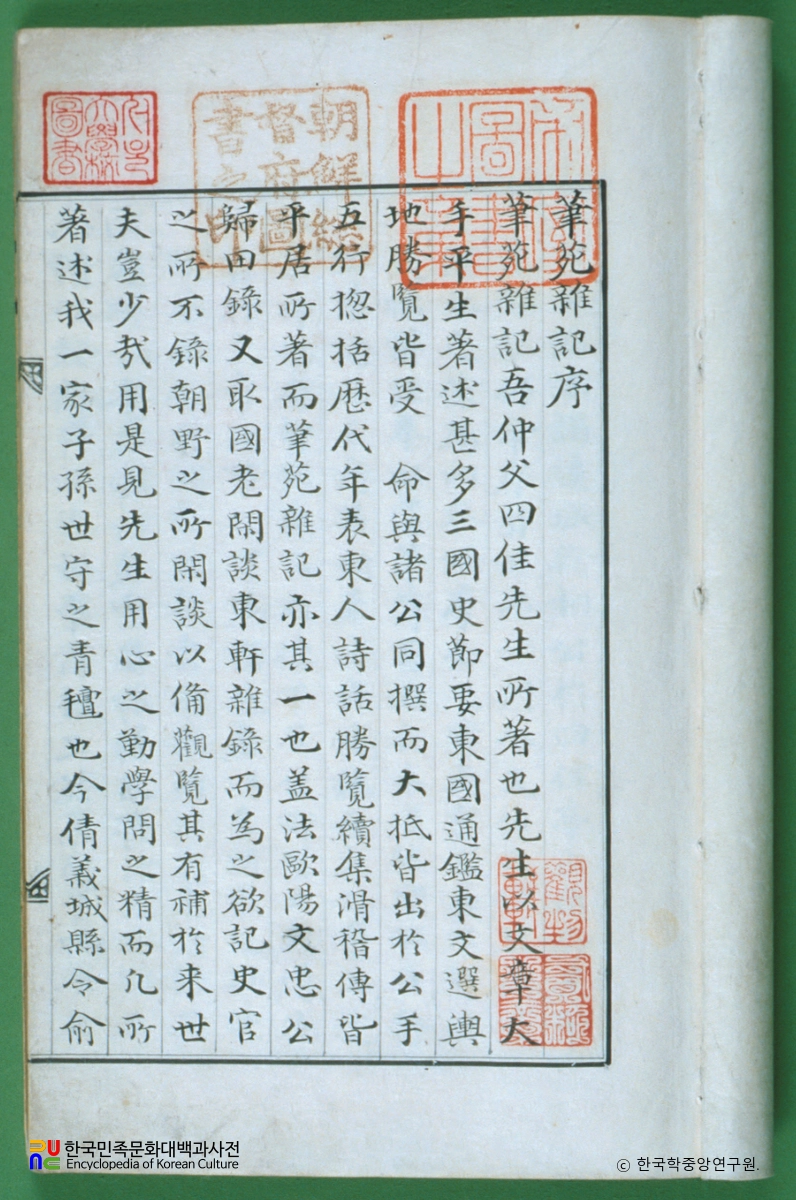 筆苑雜記序
筆苑雜記吾仲父四佳先生所著也先生以文章大
手平生著述甚多三國史節要東國通鑑東文選輿
地勝覽皆受 命與諸公同撰而大抵皆出於公手
五行揔括歷代年表東人詩話勝覽續集滑稽傳皆
平居所著而筆苑雜記亦其一也盖法歐陽文忠公
歸田錄又取國老閑談東軒雜錄而為之欲記史官
之所不錄朝野之所閑談以俻觀覽其有補於来世
夫豈少哉用是見先生用心之勤學問之精而凡所
著述我一家子孫世守之青氊也今倩義城縣令俞
朝鮮總
督府圖
書之印
한국민족문화대백과사전
Encyclopedia of Korean Culture
© 한국학중앙연구원.